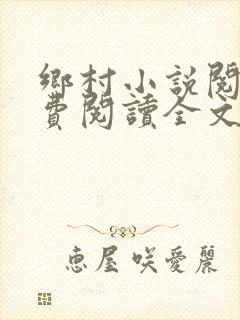 鄉村小説閱
費閱讀全文
恵屋咲愛麗